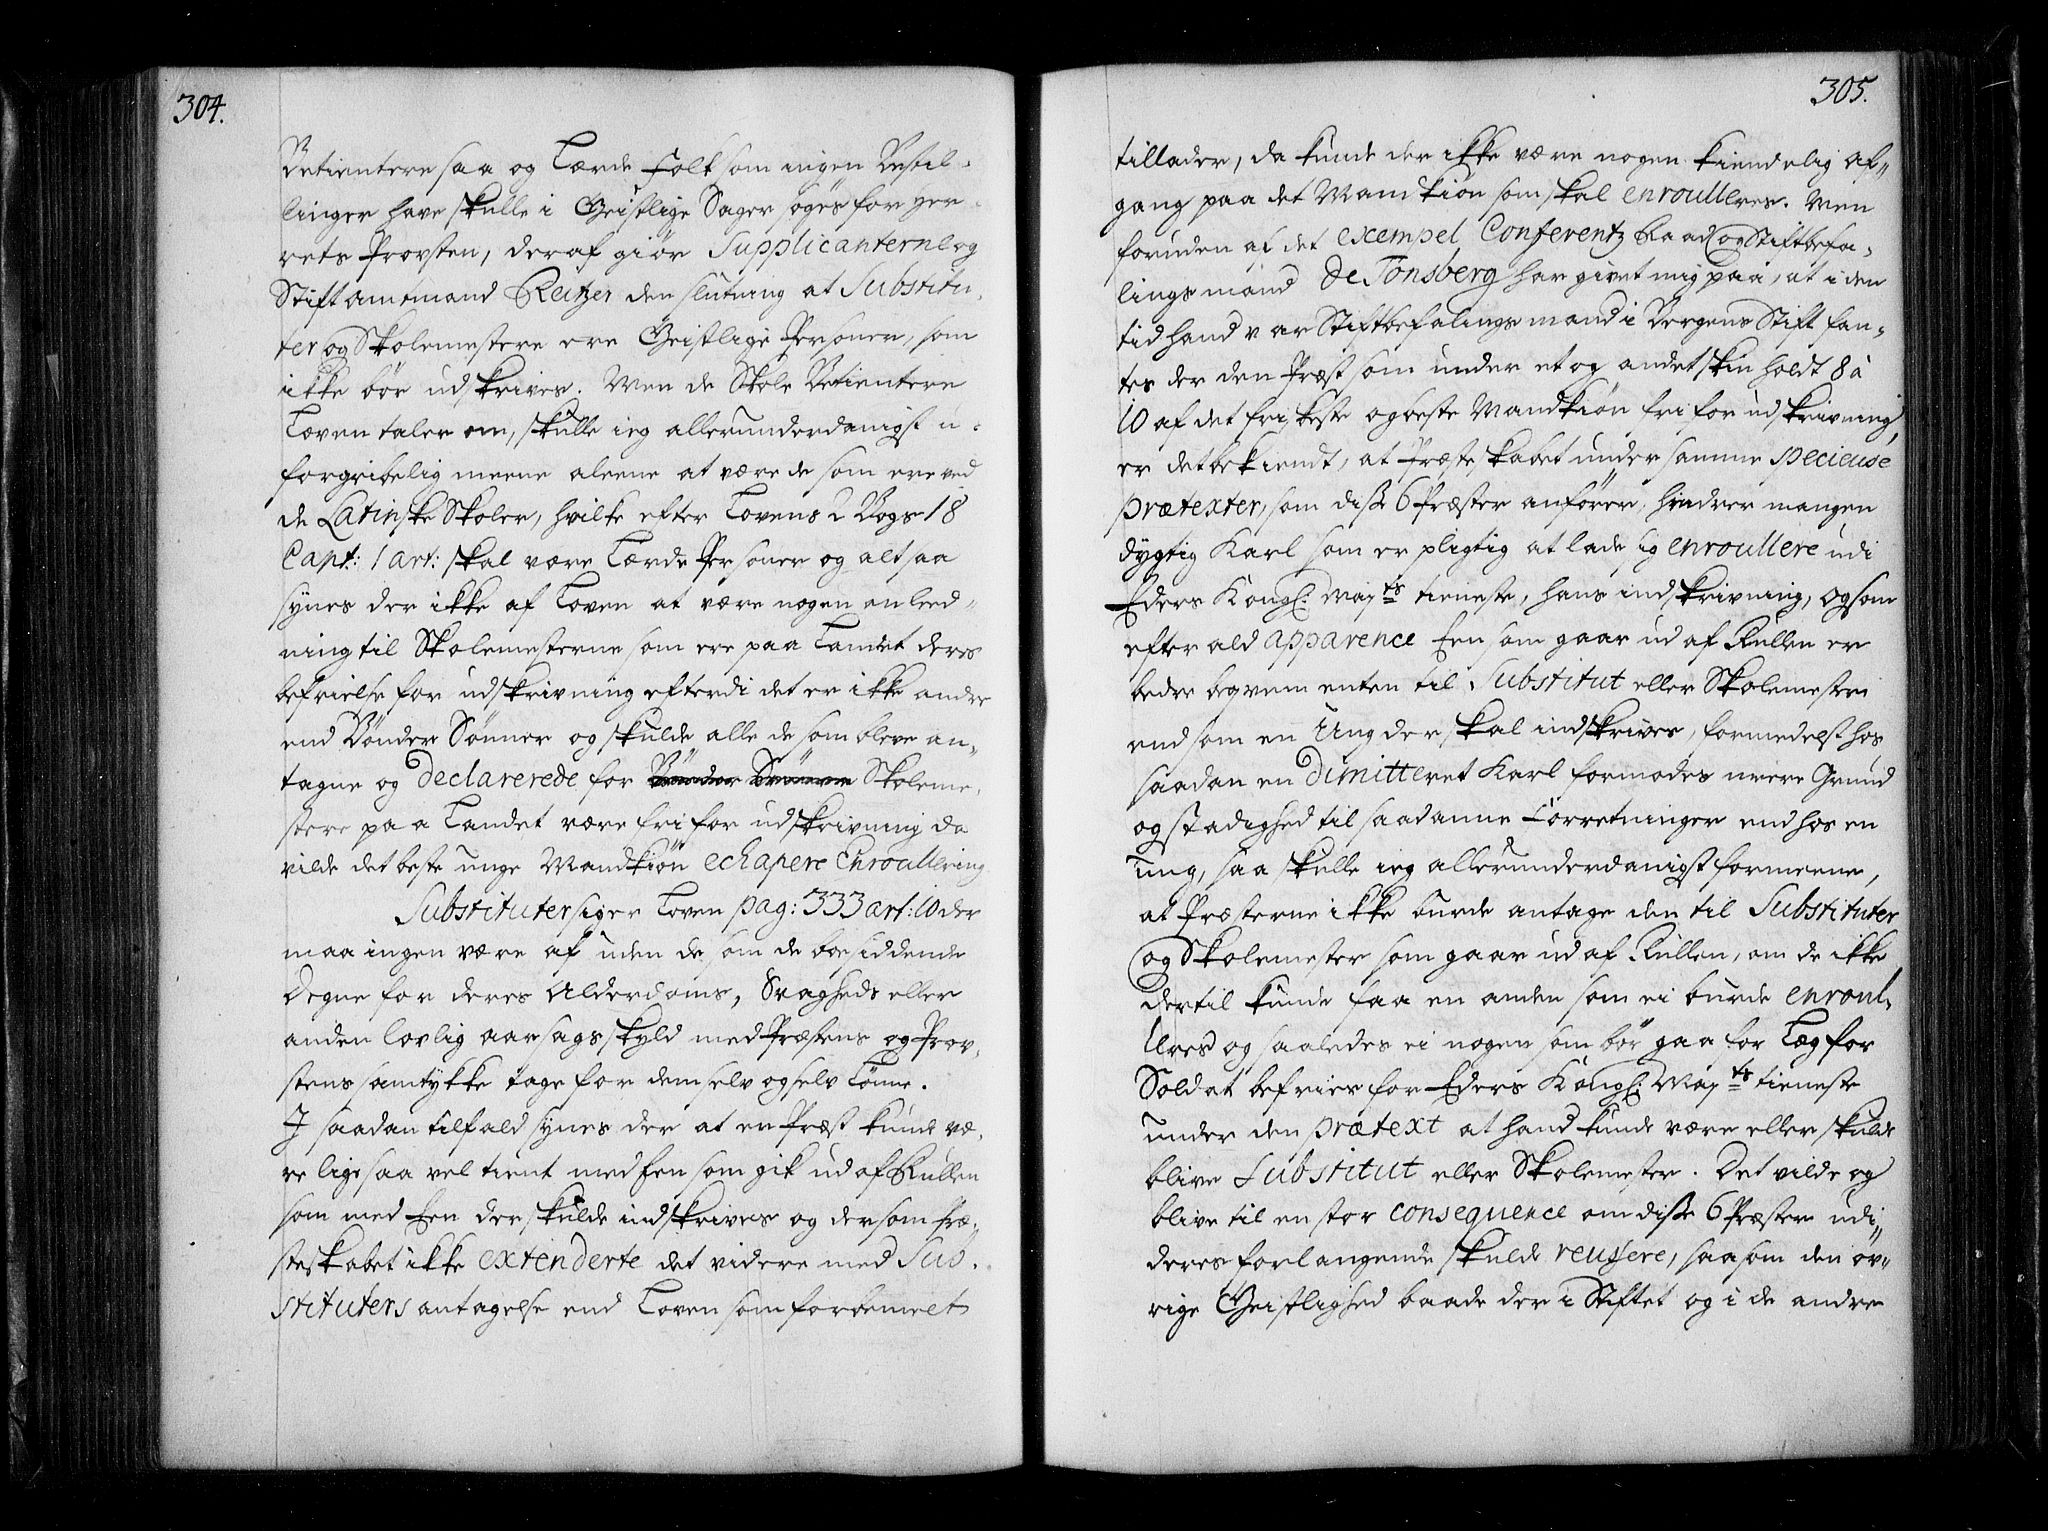 304.
Betientere saa og Lærde Folk som ingen Bestil-
linger have skulle i Geistlige Sager søges for Her-
rets Provsten, deraf giør Supplicanterne og
Stiftamtmand Reitzer den slutning at Substitu-
ter og Skolemestere ere Geistlige Personer, som
ikke bør udskrives. Men de Skole Betientere
Loven taler om, skulle ieg allerunderdanigst u-
forgribelig meene aleene at være de som ere ved
de Latinske Skoler, hvilke efter Lovens 2 Bogs 18
Capt: 1 art: skal være Lærde Personer og altsaa
synes der ikke af Loven at være nogen anleed-
ning til Skolemesterne som ere paa Landet deres
befrielse for udskrivning efterdi det er ikke andre
end Bønder Sønner og skulde alle de som bleve an-
tagne og declarerede for Bønder Sønner Skoleme-
stere paa Landet være fri for udskrivning da
vilde det beste unge Mandkiøn echapere Enroullering
Substituter siger Loven pag: 333 art: 10 der
maa ingen være af uden de som de boesiddende
Degne for deres Alderdoms, Svagheds eller
anden lovlig aarsags skyld med Præstens og Prov-
stens samtykke tage for dem selv og selv Lønne.
I saadan tilfald synes der at en Præst kunde væ-
re lige saa vel tient med Een som gik ud af Rullen
som med Een der skulde indskrives og dersom Præ-
steskabet ikke extenderte det videre med Sub-
stituters antagelse end Loven som forbemelt
305.
tillader, da kunde der ikke være nogen kiendelig af-
gang paa det Mandkiøn som skal enroulleres. Men
foruden af det exempel Conferentz Raad og Stiftbefa-
lingsmand de Tonsberg har givet mig paa, at i den
tid hand var Stiftbefalingsmand i Bergens Stift fan-
tes der den Præst som under et og andet skin holdt 8 à
10 af det friskeste og beste Mandkiøn fri for udskrivning,
er det bekiendt, at Præsteskabet under samme specieuse
prætexter, som disse 6 Præster anfører, hindrer mangen
dygtig Karl som er pligtig at lade sig enroullere udi
Eders Kongl: Maj.ts tieneste, hans indskrivning, og som
efter ald apparence Een som gaar ud af Rullen er
bedre beqvem enten til Substitut eller Skolemester
end som en Ung der skal indskrives, formedelst hos
saadan en dimitteret Karl formodes meere Grund
og stadighed til saadanne Forretninger end hos en
ung, saa skulle ieg allerunderdanigst formeene,
at Præsterne ikke burde antage den til Substituter
og Skolemester som gaar ud af Rullen, om de ikke
dertil kunde faa en anden som ei burde enroul-
lleres og saaledes ei nogen som bør gaa for Læg for
Soldat befries for Eders Kongl: Maj.ts tieneste
under den prætext at hand kunde være eller skulde
blive Substitut eller Skolemester. Det vilde og
blive til en stor consequence om disse 6 Præster udi
deres forlangende skulde reussere, saasom den øv-
rige Geistlighed baade der i Stiftet og i de andre